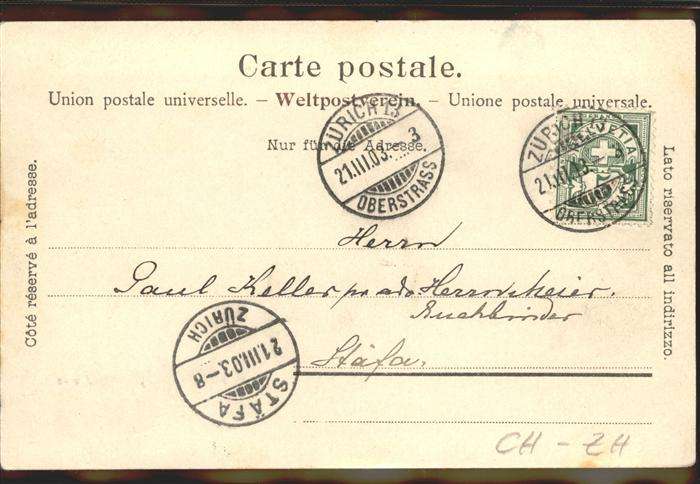 Carte postale.
Union postale universelle. – Weltpostverein. – Unione postale universale.
Nur für die Adresse.
Côté réservé à l'adresse.
Lato riservato all indirizzo.
ZÜRICH 13
21.III.03. 3
OBERSTRASS
ZÜRICH
HELVETIA
21.III.03
OBERSTRASS
Herrn
Paul Keller pr ado Herrn Meier.
Buchbinder
Stäfa.
ZÜRICH
21.III.03.–8
STÄFA
CH – ZH